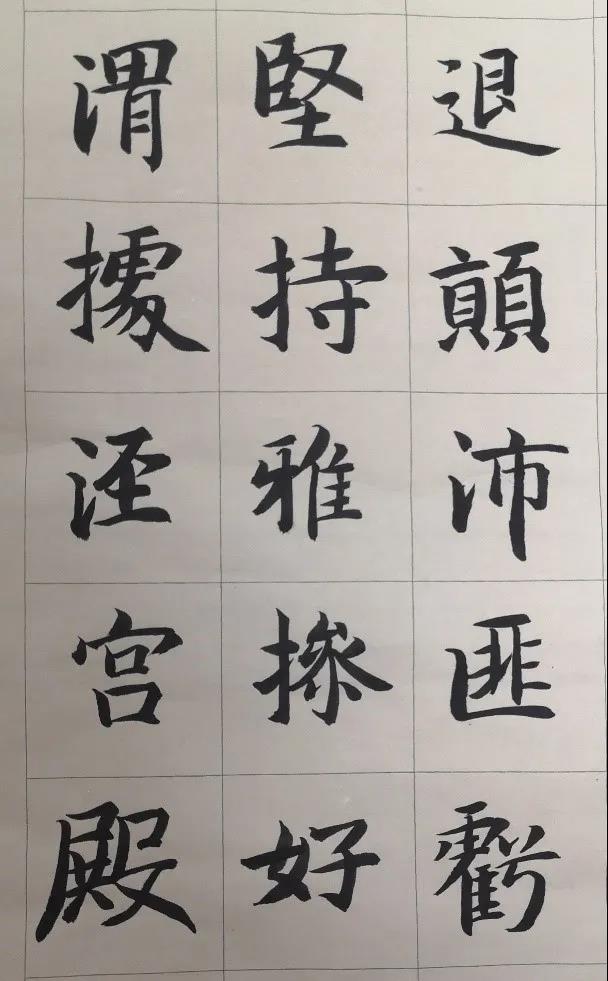 退顛沛匪虧
堅持雅操好
渭據涇宮殿